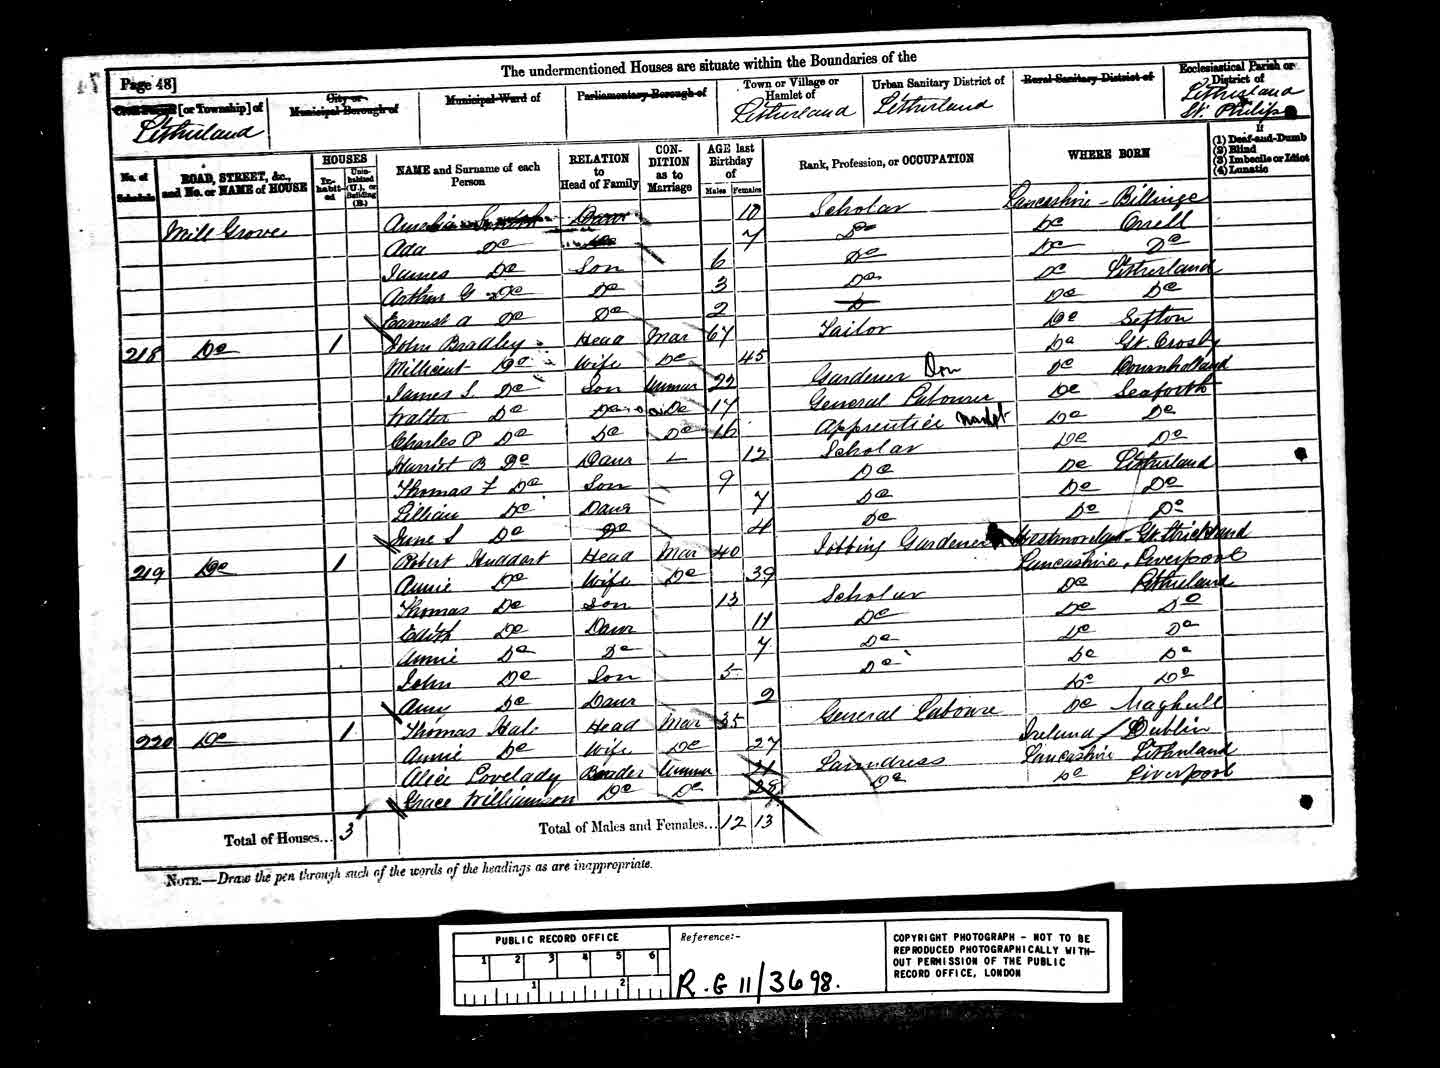 Page 48]
The undermentioned Houses are situate within the Boundaries of the
[or Township] of
Litherland
City or Municipal Borough of
Municipal Ward of
Parliamentary Borough of
Town or Village or Hamlet of
Litherland
Urban Sanitary District of
Litherland
Rural Sanitary District of
Ecclesiastical Parish or District of
Litherland
St. Philips
No. of Schedule
ROAD, STREET, &c., and No. or NAME of HOUSE
HOUSES
In-habit-ed
Unin-habited (U.), or Building (B.)
NAME and Surname of each Person
RELATION to Head of Family
CON-DITION as to Marriage
AGE last Birthday of
Males
Females
Rank, Profession, or OCCUPATION
WHERE BORN
If
(1) Deaf-and-Dumb
(2) Blind
(3) Imbecile or Idiot
(4) Lunatic
Mill Grove Daur 10 Scholar Lancashire - Billinge
Ada Do Do 7 Do Do Orrell
James Do Son 6 Do Do Do
Arthur G Do Do 3 Do Do Litherland
Earnest A Do Do 2 Do Do
218 Do 1 John Bradley Head Mar 67 Tailor Do Sefton
Millicent Do Wife Do 45 Do Gt. Crosby
James S. Do Son Unmar 22 Gardener Dom Do
Walter Do Do Do 17 General Labourer Do Seaforth
Charles P Do Do Do 16 Apprentice Do Do
Harriet B Do Daur 12 Scholar Do Do
Thomas F Do Son 9 Do Do Litherland
Lillian Do Daur 7 Do Do Do
June S Do Do 4 Do Do Do
219 Do 1 Robert Huddart Head Mar 40 Jobbing Gardener Westmoreland - Gt. Strickland
Annie Do Wife Do 39 Lancashire, Liverpool
Thomas Do Son 13 Scholar Do Litherland
Edith Do Daur 11 Do Do Do
Annie Do Do 7 Do Do Do
John Do Son 5 Do Do Do
Amy Do Daur 2 Do Do
220 Do 1 Thomas Head Mar 35 General Laboure Do Maghull
Annie Do Wife Do 27 Ireland / Dublin
Alice Lovelady Boarder Unmar 21 Laundress Lancashire Litherland
Grace Williamson Do Do 28 Do Do Liverpool
Total of Houses... 3
Total of Males and Females... 12 13
NOTE.—Draw the pen through such of the words of the headings as are inappropriate.
PUBLIC RECORD OFFICE
1 2 3 4 5 6
1 2
Reference:-
R.G 11/3698.
COPYRIGHT PHOTOGRAPH - NOT TO BE
REPRODUCED PHOTOGRAPHICALLY WITH-
OUT PERMISSION OF THE PUBLIC
RECORD OFFICE, LONDON